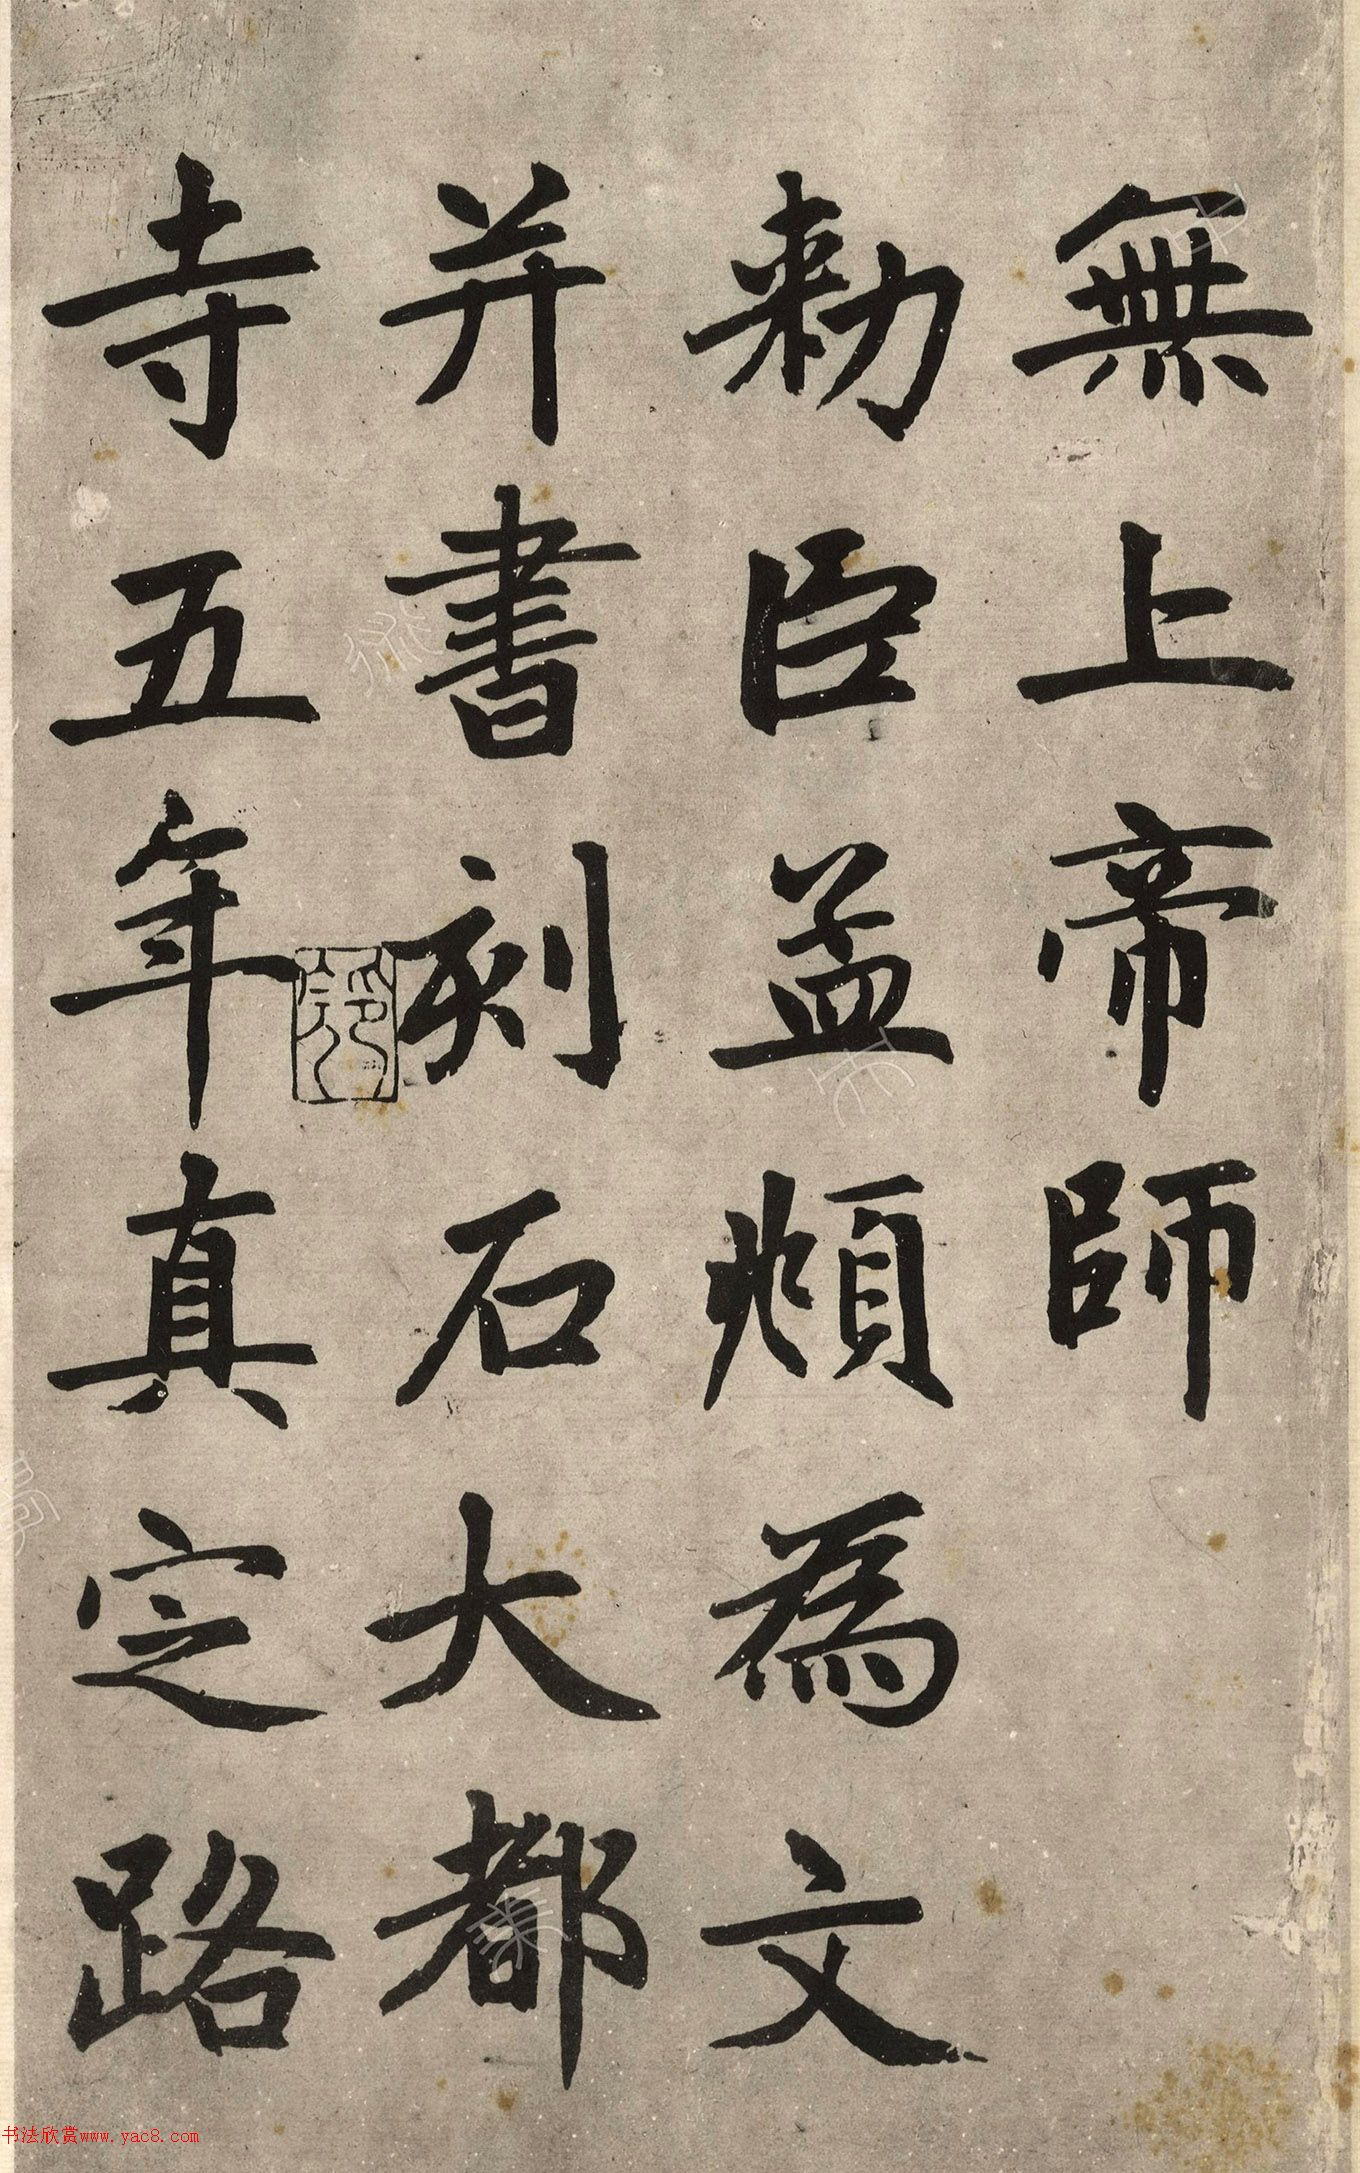 無上帝師
勑臣孟頫為文
并書刻石大都
寺五年真定路
书法欣赏www.yac8.com